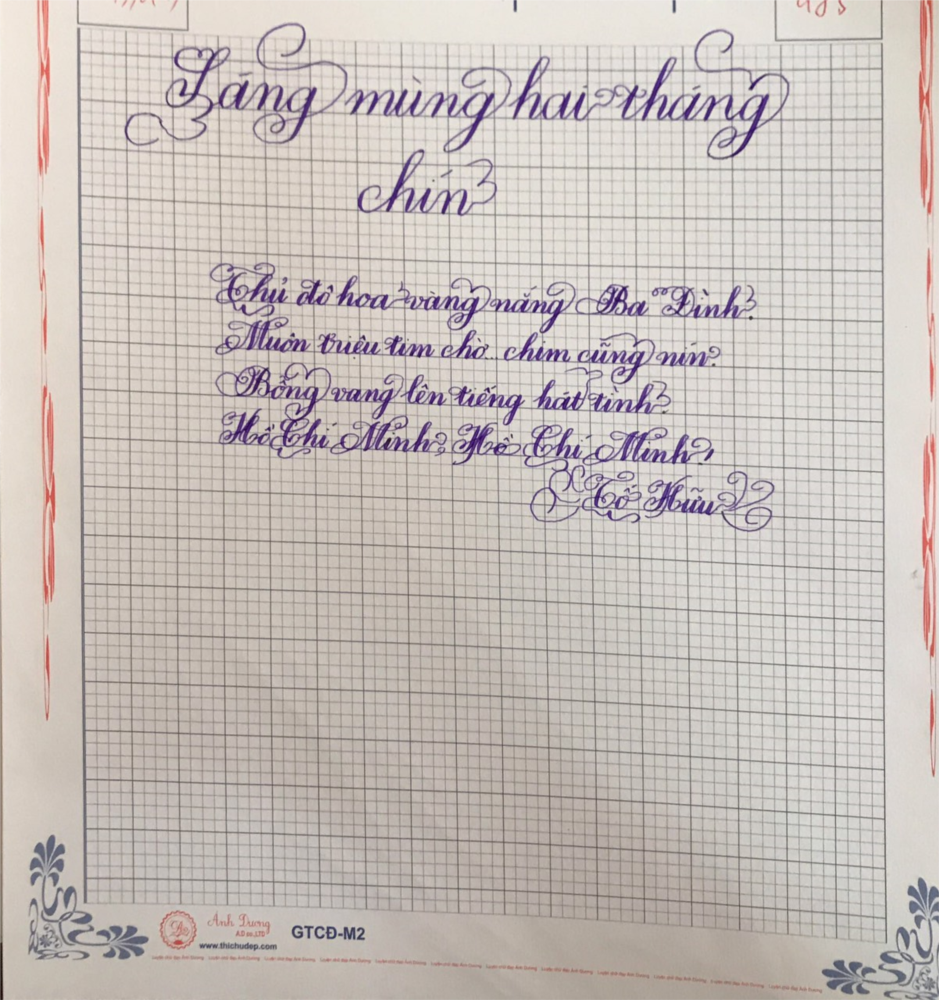 Sáng mùng hai tháng
chín
Thủ đô hoa vàng nắng Ba Đình.
Muôn triệu tim chờ.. chim cũng nín.
Bỗng vang lên tiếng hát tình.
Hồ Chí Minh, Hồ Chí Minh!
Tố Hữu
Ánh Dương
AD co.,LTD
www.thichudep.com
GTCĐ-M2